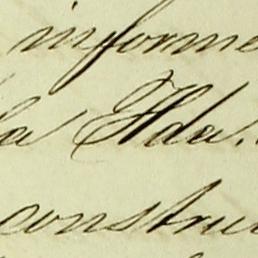 informe
la Hda.
constru